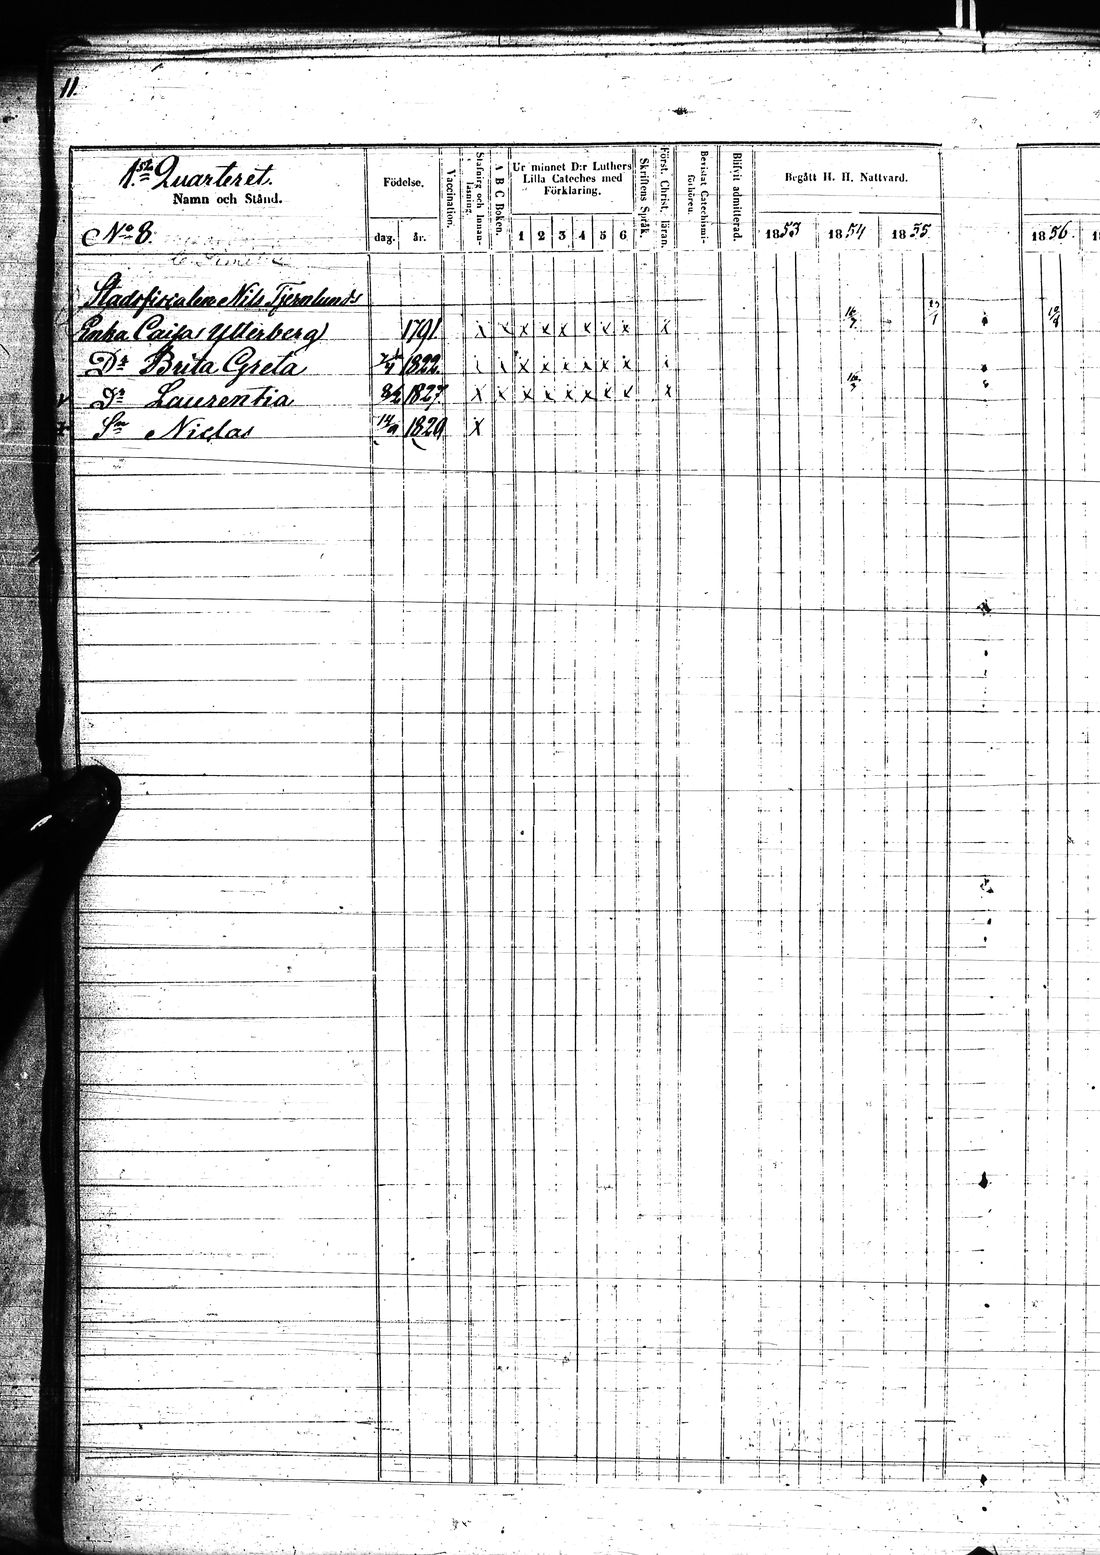 11.
1.sta Quarteret.
Namn och Stånd.
No 8.
Födelse.
dag. år.
Vaccination.
Stafning och Innanläsning.
A B C Boken.
Ur minnet D:r Luthers
Lilla Cateches med
Förklaring.
1 2 3 4 5 6
Skriftens Språk.
Först. Christ. läran.
Bevistat Catechismi-
förhören.
Blifvit admitterad.
Begått H. H. Nattvard.
1853 1854 1855 1856
Stadsfiscalen Nils Tjernlunds
Enka Caisa Ytterberg 1791. x x x x x x x x x
Dr Brita Greta 1822. x x x x x x
Dr Laurentia 1827. x x x x x x x x x
Sn Niclas 14/9 1829 x